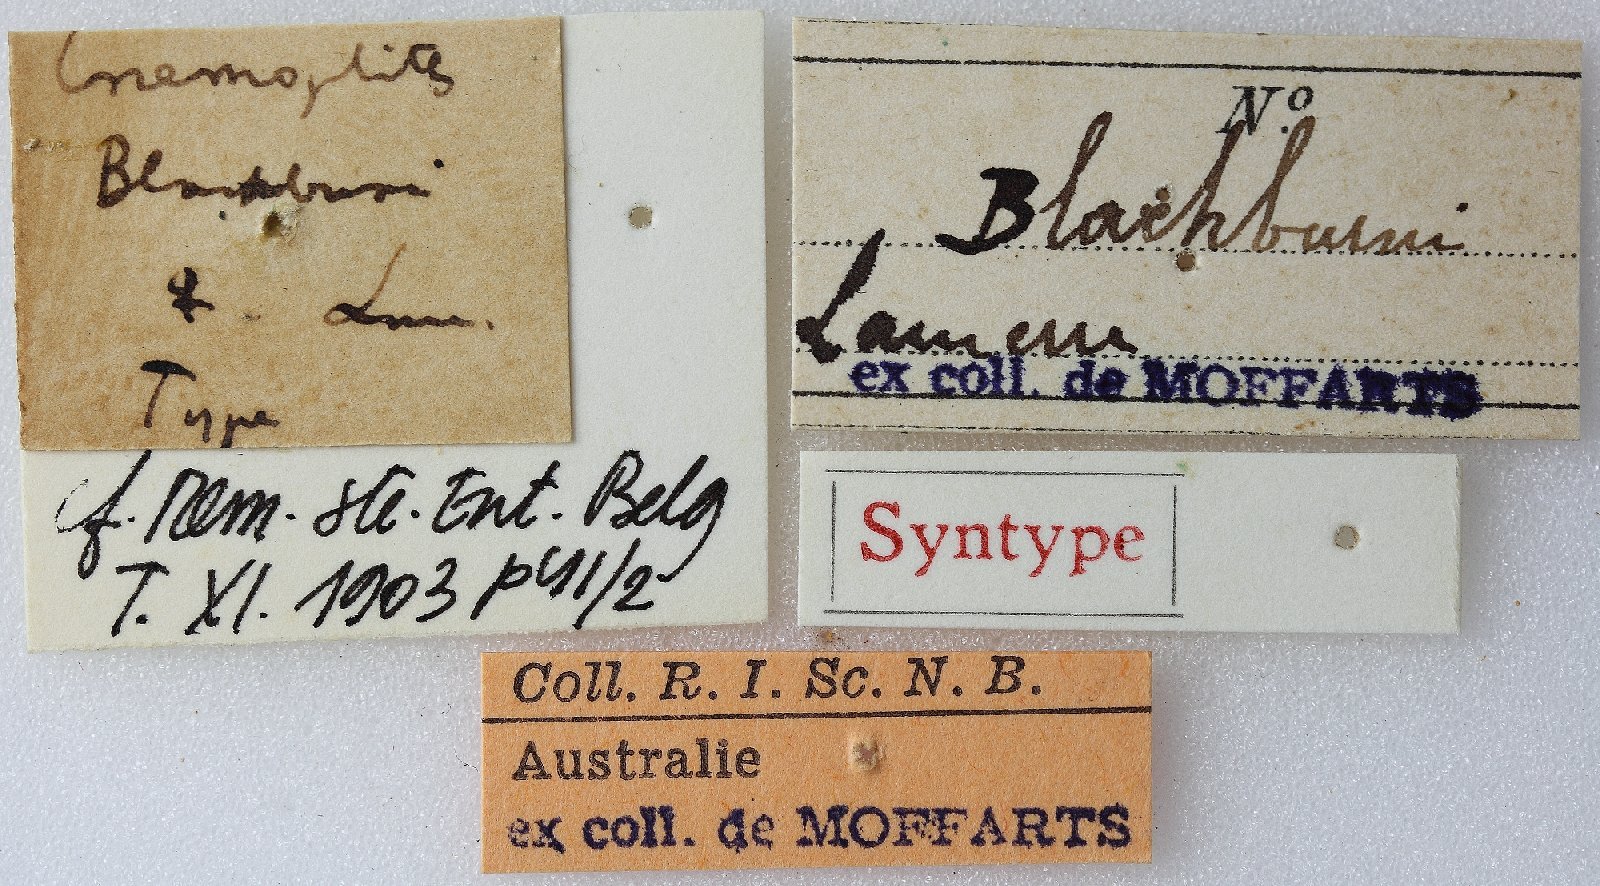 Cnemoplites
Blackburni
♀ Lmr.
Type
cf. Mém. Ste. Ent. Belg
T. XI. 1903
No
Blackburni
Lameere
ex coll. de MOFFARTS
Syntype
Coll. R. I. Sc. N. B.
Australie
ex coll. de MOFFARTS